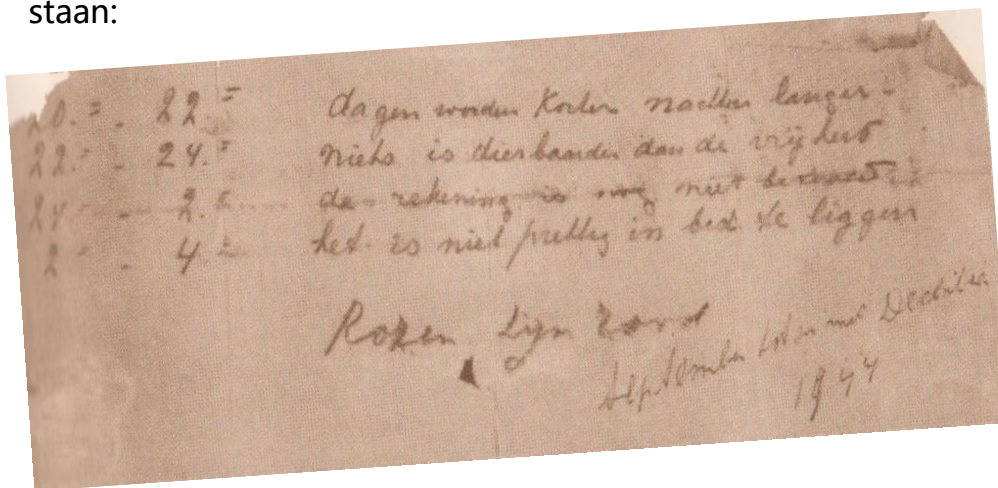 staan:
20.= - 22.= dagen worden korter nachten langer -
22.= - 24.= niets is dierbaarder dan de vrijheid
24.= - 2.= de rekening is nog niet betaald.
2 = - 4 = het is niet prettig in bed te liggen
Rozen Zijn Rood
September tot en met December
1944